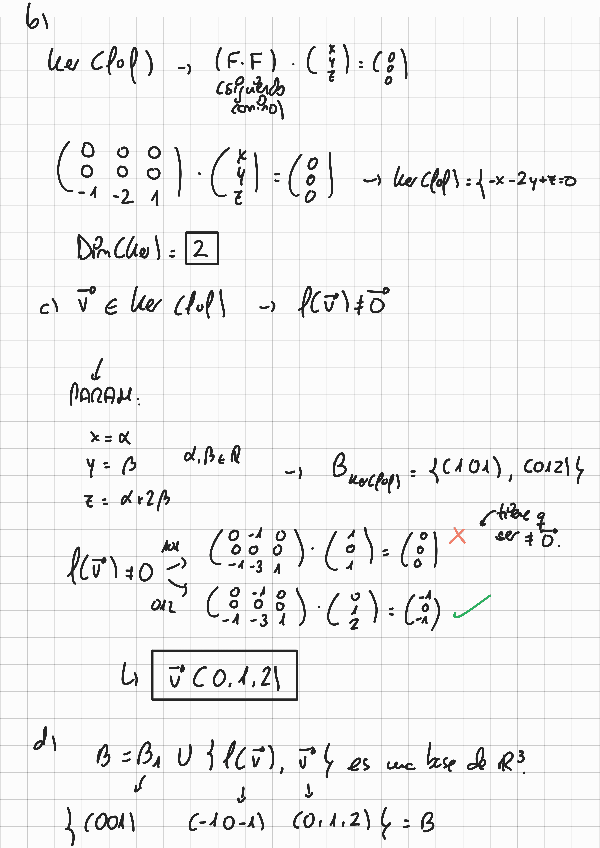 b)
Ker (f∘f) → (F·F) · (x y z) = (0 0 0)
(siguiendo
camino)
(0 0 0 / 0 0 0 / -1 -2 1) · (x y z) = (0 0 0) → Ker(f∘f) = { -x-2y+z=0
Dim(Ker) = 2
c) v⃗ ∈ Ker (f∘f) → f(v⃗) ≠ 0⃗
↓
PARAM:
x = α
y = β α, β ∈ ℝ → B Ker(f∘f) = {(1 0 1), (0 1 2)}
z = α + 2β
tiene q
ser ≠ 0⃗.
f(v⃗) ≠ 0 101 → (0 -1 0 / 0 0 0 / -1 -3 1) · (1 0 1) = (0 0 0) ✗
012 → (0 -1 0 / 0 0 0 / -1 -3 1) · (0 1 2) = (-1 0 -1) ✓
↳ v⃗ (0, 1, 2)
d) B = B₁ ∪ { f(v⃗), v⃗ } es una base de ℝ³.
{ (001) (-1 0 -1) (0, 1, 2) } = B